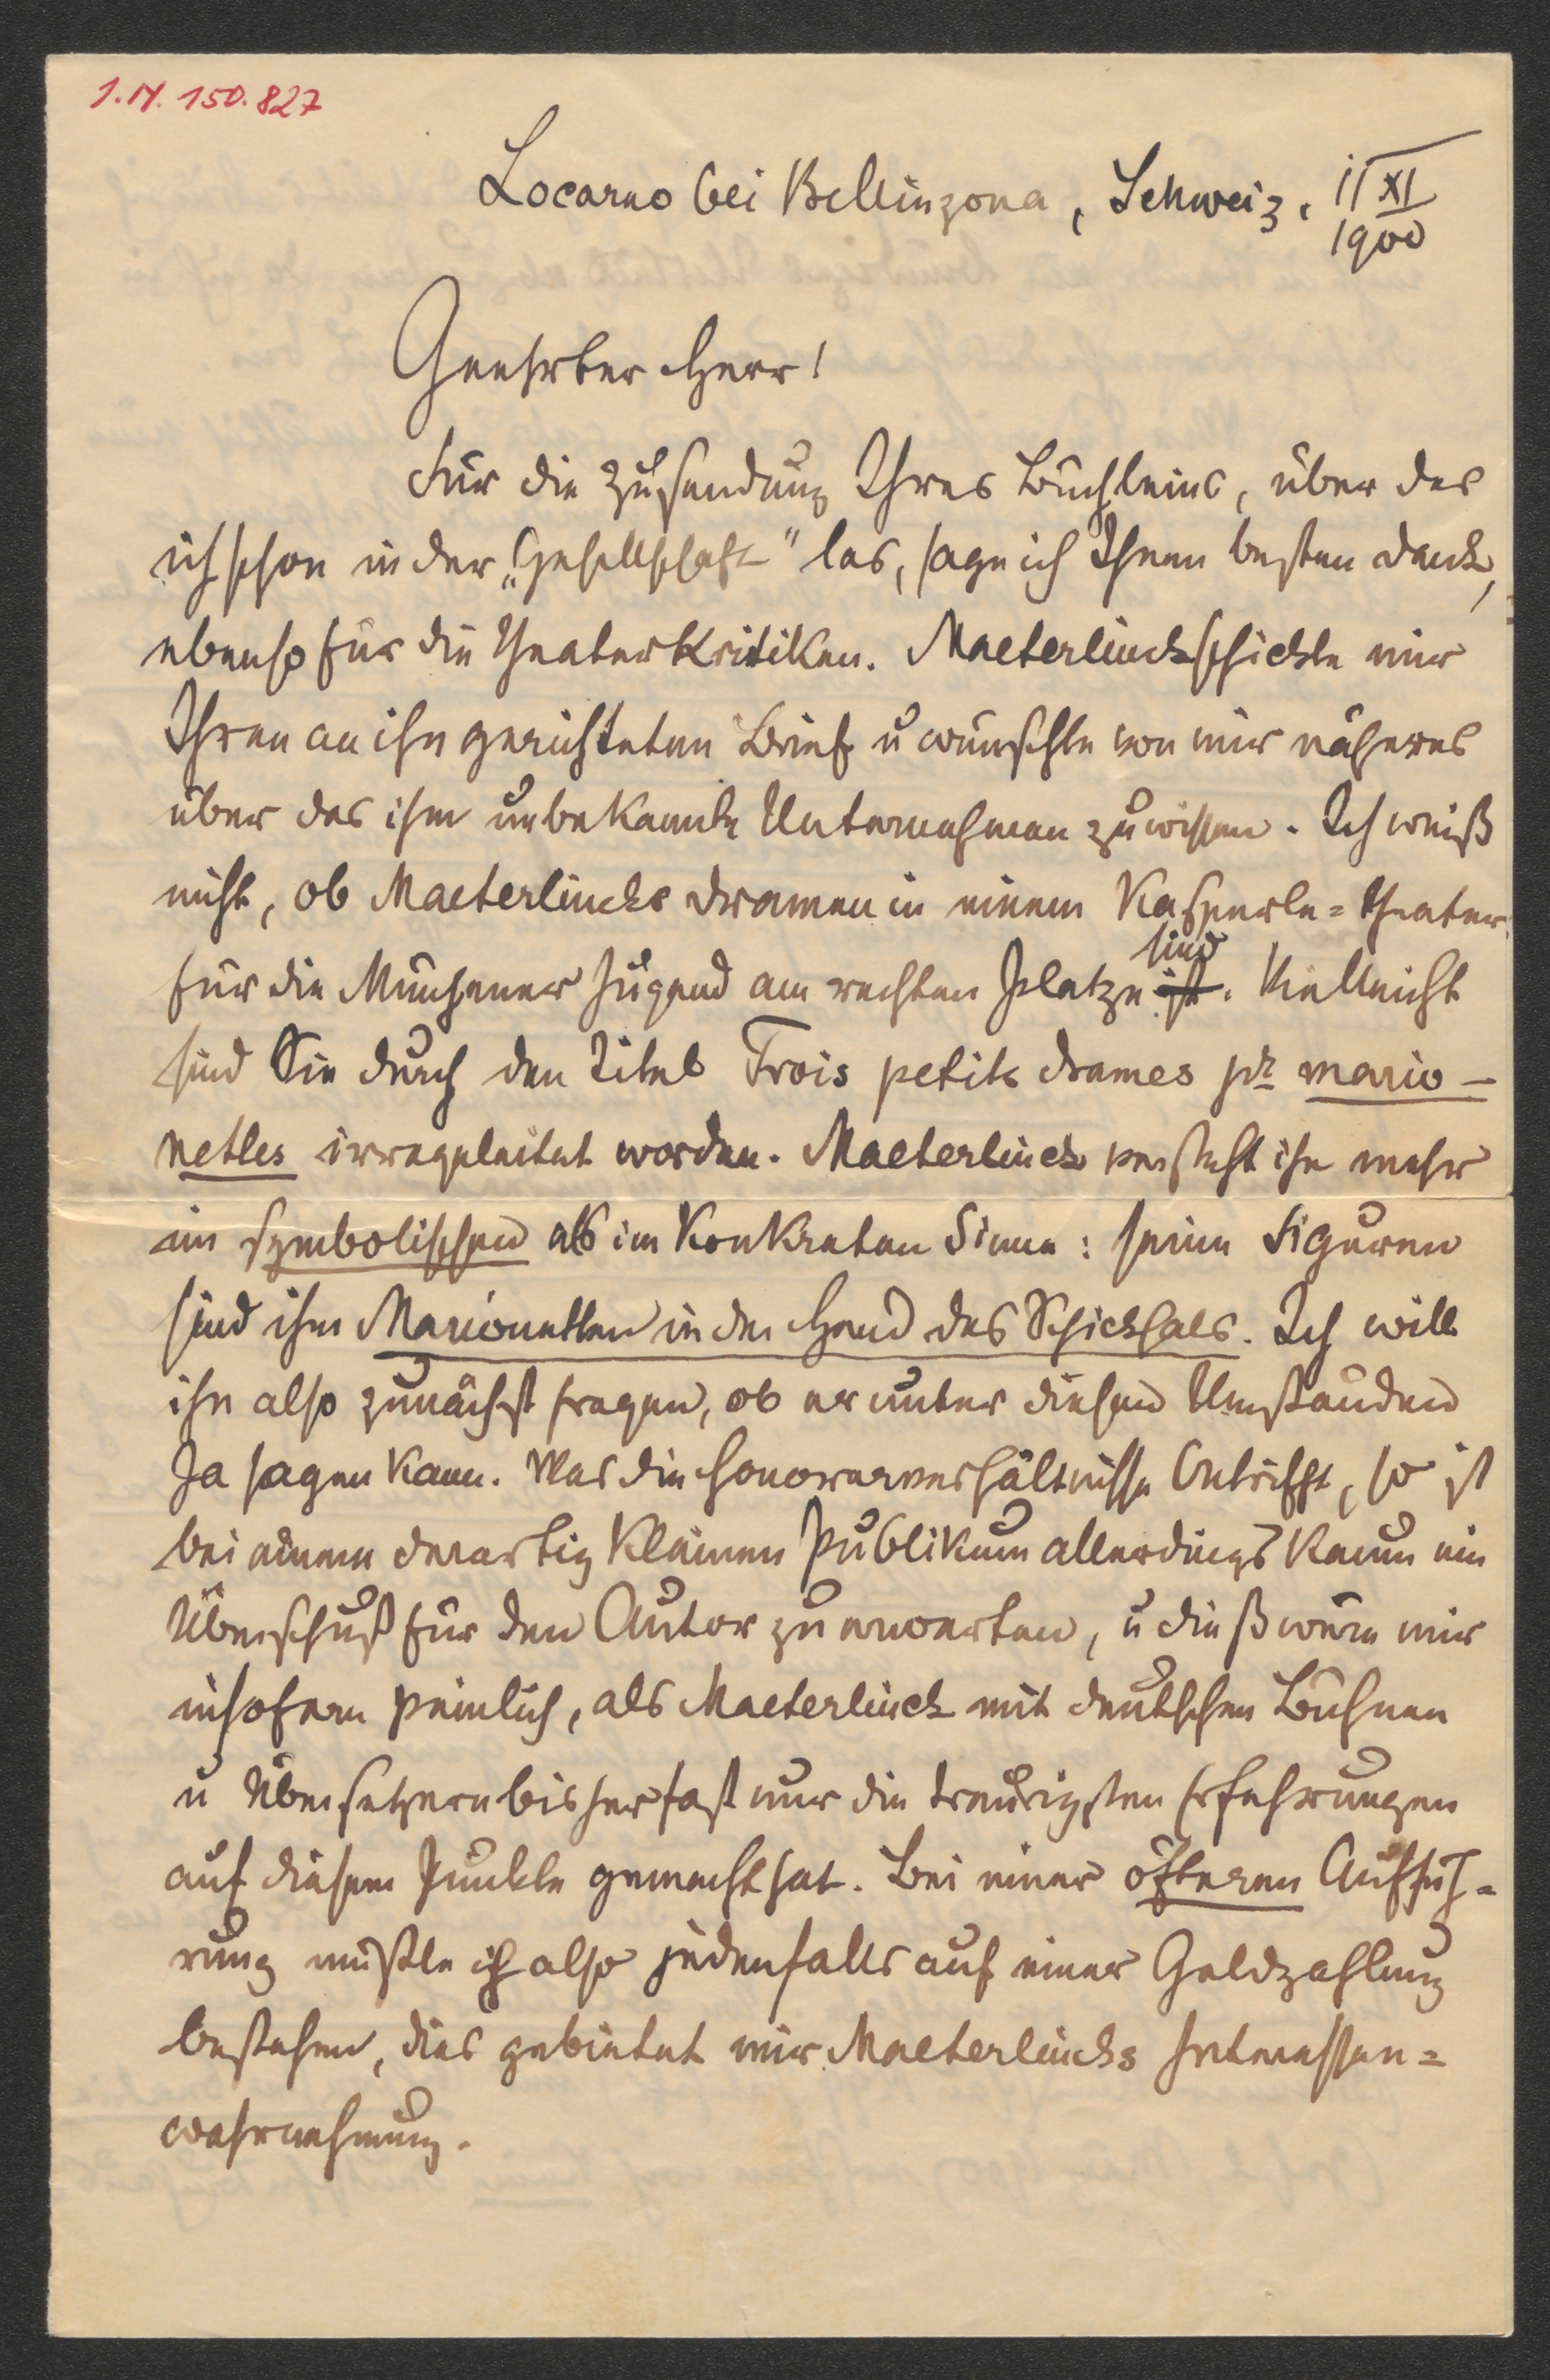 I.N. 150.827
Locarno bei Bellinzona, Schweiz, 11 XI
1900
Geehrter Herr!
Für die Zusendung Ihres Büchleins, über das
ich schon in der „Gesellschaft" las, sage ich Ihnen besten Dank,
ebenso für die Theaterkritiken. Maeterlinck schickte mir
Ihren an ihn gerichteten Brief u wünschte von mir näheres
über das ihm unbekannte Unternehmen zu wissen. Ich weiß
nicht, ob Maeterlincks Dramen in einem Kasperle=Theater
für die Münchener Jugend am rechten Platze ist sind. Vielleicht
sind Sie durch den Titel Trois petits drames pr mario-
nettes irregeleitet worden. Maeterlinck versteht ihn mehr
im symbolischen als im konkreten Sinne: seine Figuren
sind ihm Marionetten in der Hand des Schicksals. Ich will
ihn also zunächst fragen, ob er unter diesen Umständen
Ja sagen kann. Was die Honorarverhältnisse betrifft, so ist
bei einem derartig kleinen Publikum allerdings kaum ein
Überschuß für den Autor zu erwarten, u dieß wäre mir
insofern peinlich, als Maeterlinck mit deutschen Bühnen
u Übersetzern bisher fast nur die traurigsten Erfahrungen
auf diesem Punkte gemacht hat. Bei einer öfteren Auffüh=
rung müßte ich also jedenfalls auf einer Geldzahlung
bestehen, dies gebietet mir Maeterlincks Interessen=
wahrnehmung.